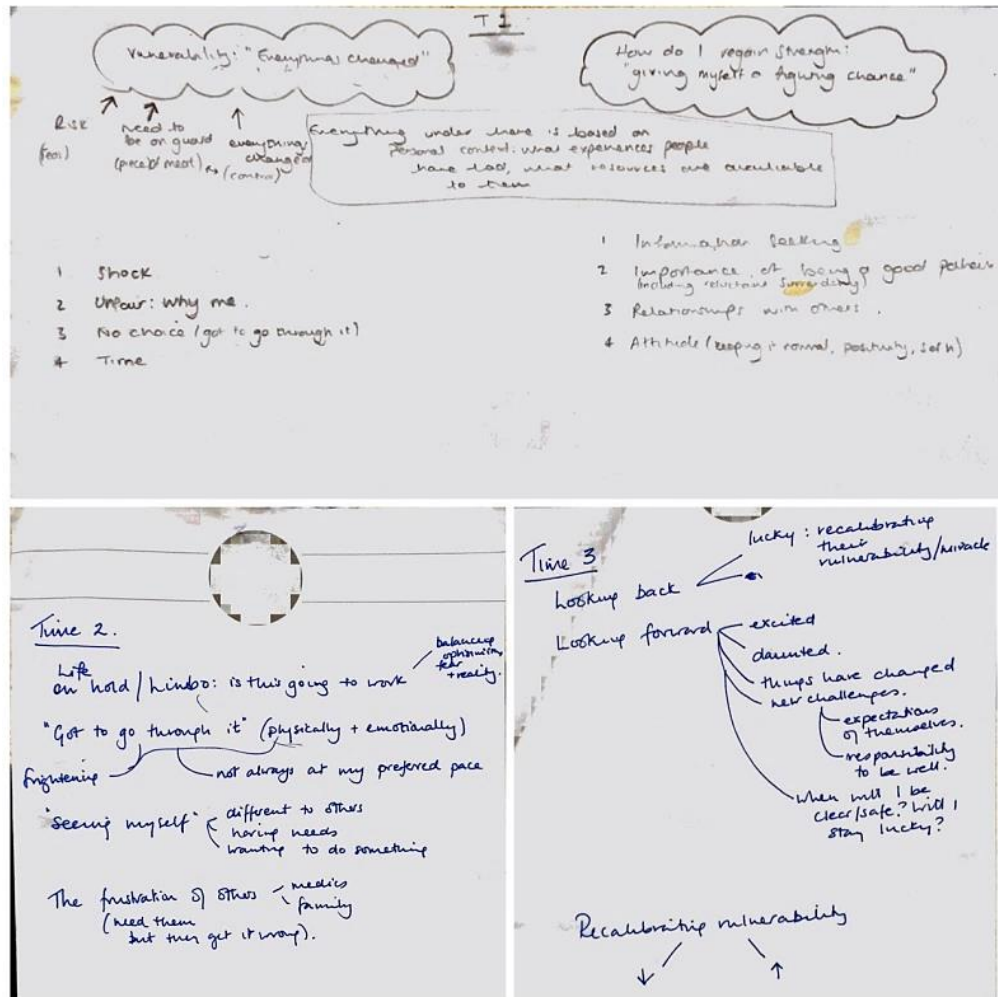 T1
Vunerability: "Everythings changed"
How do I regain strength:
"giving myself a fighting chance"
Risk
(fear)
need to
be on guard
(piece of meat)
everythings
changed
(control)
Everything under here is based on
personal context: what experiences people
have had, what resources are available
to them
1 Shock
2 Unfair: Why me.
3 No choice (got to go through it)
4 Time
1 Information Seeking
2 Importance of being a good patient
(including reluctant surrendering)
3 Relationships with others.
4 Attitude (keeping it normal, positivity,
Time 2.
Life
on hold / Limbo: is this going to work
balancing
optimism,
fear
+ reality.
"Got to go through it" (physically + emotionally)
frightening
not always at my preferred pace
"Seeing myself"
different to others
having needs
wanting to do something
The frustration of others
medics
family
(need them
but they get it wrong).
Time 3
Looking back
lucky: recalibrating
their
vulnerability/miracle
Looking forward
excited
daunted.
things have changed
new challenges.
expectations
of themselves.
responsibility
to be well.
when will I be
clear/safe? Will I
stay lucky?
Recalibrating vulnerability
↓ ↑